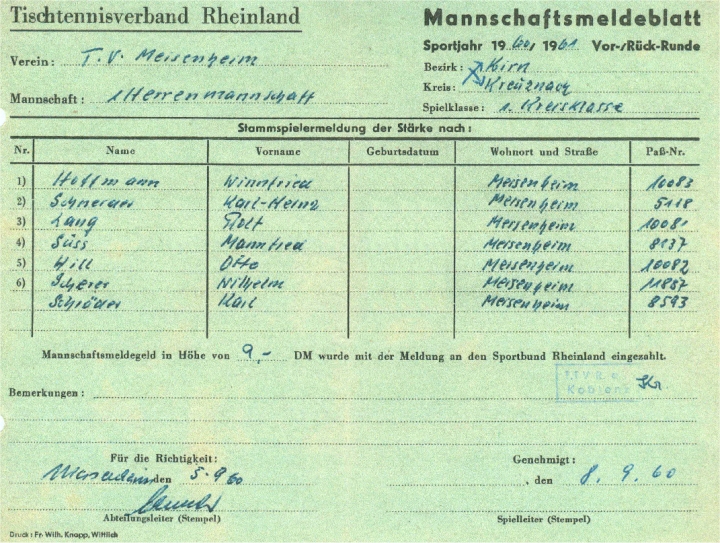 Tischtennisverband Rheinland
Mannschaftsmeldeblatt
Sportjahr 1960/1961 Vor-/Rück-Runde
Verein: T.V. Meisenheim
Bezirk: Kirn
Kreis: Kreuznach
Mannschaft: 1 Herrenmannschaft
Spielklasse: 1. Kreisklasse
Stammspielermeldung der Stärke nach:
Nr. Name Vorname Geburtsdatum Wohnort und Straße Paß-Nr.
1) Hoffmann Winnfried Meisenheim 10083
2) Schneider Karl-Heinz Meisenheim 5118
3) Lang Rolf Meisenheim 10081
4) Süss Mannfred Meisenheim 8137
5) Will Otto Meisenheim 10082
6) Scherer Wilhelm Meisenheim 11887
Schröder Karl Meisenheim 8593
Mannschaftsmeldegeld in Höhe von 9,- DM wurde mit der Meldung an den Sportbund Rheinland eingezahlt.
Koblenz
Bemerkungen:
Für die Richtigkeit:
Genehmigt:
den 5.9.60
, den 8.9.60
Abteilungsleiter (Stempel)
Spielleiter (Stempel)
Druck: Fr. Wilh. Knapp, Wittlich